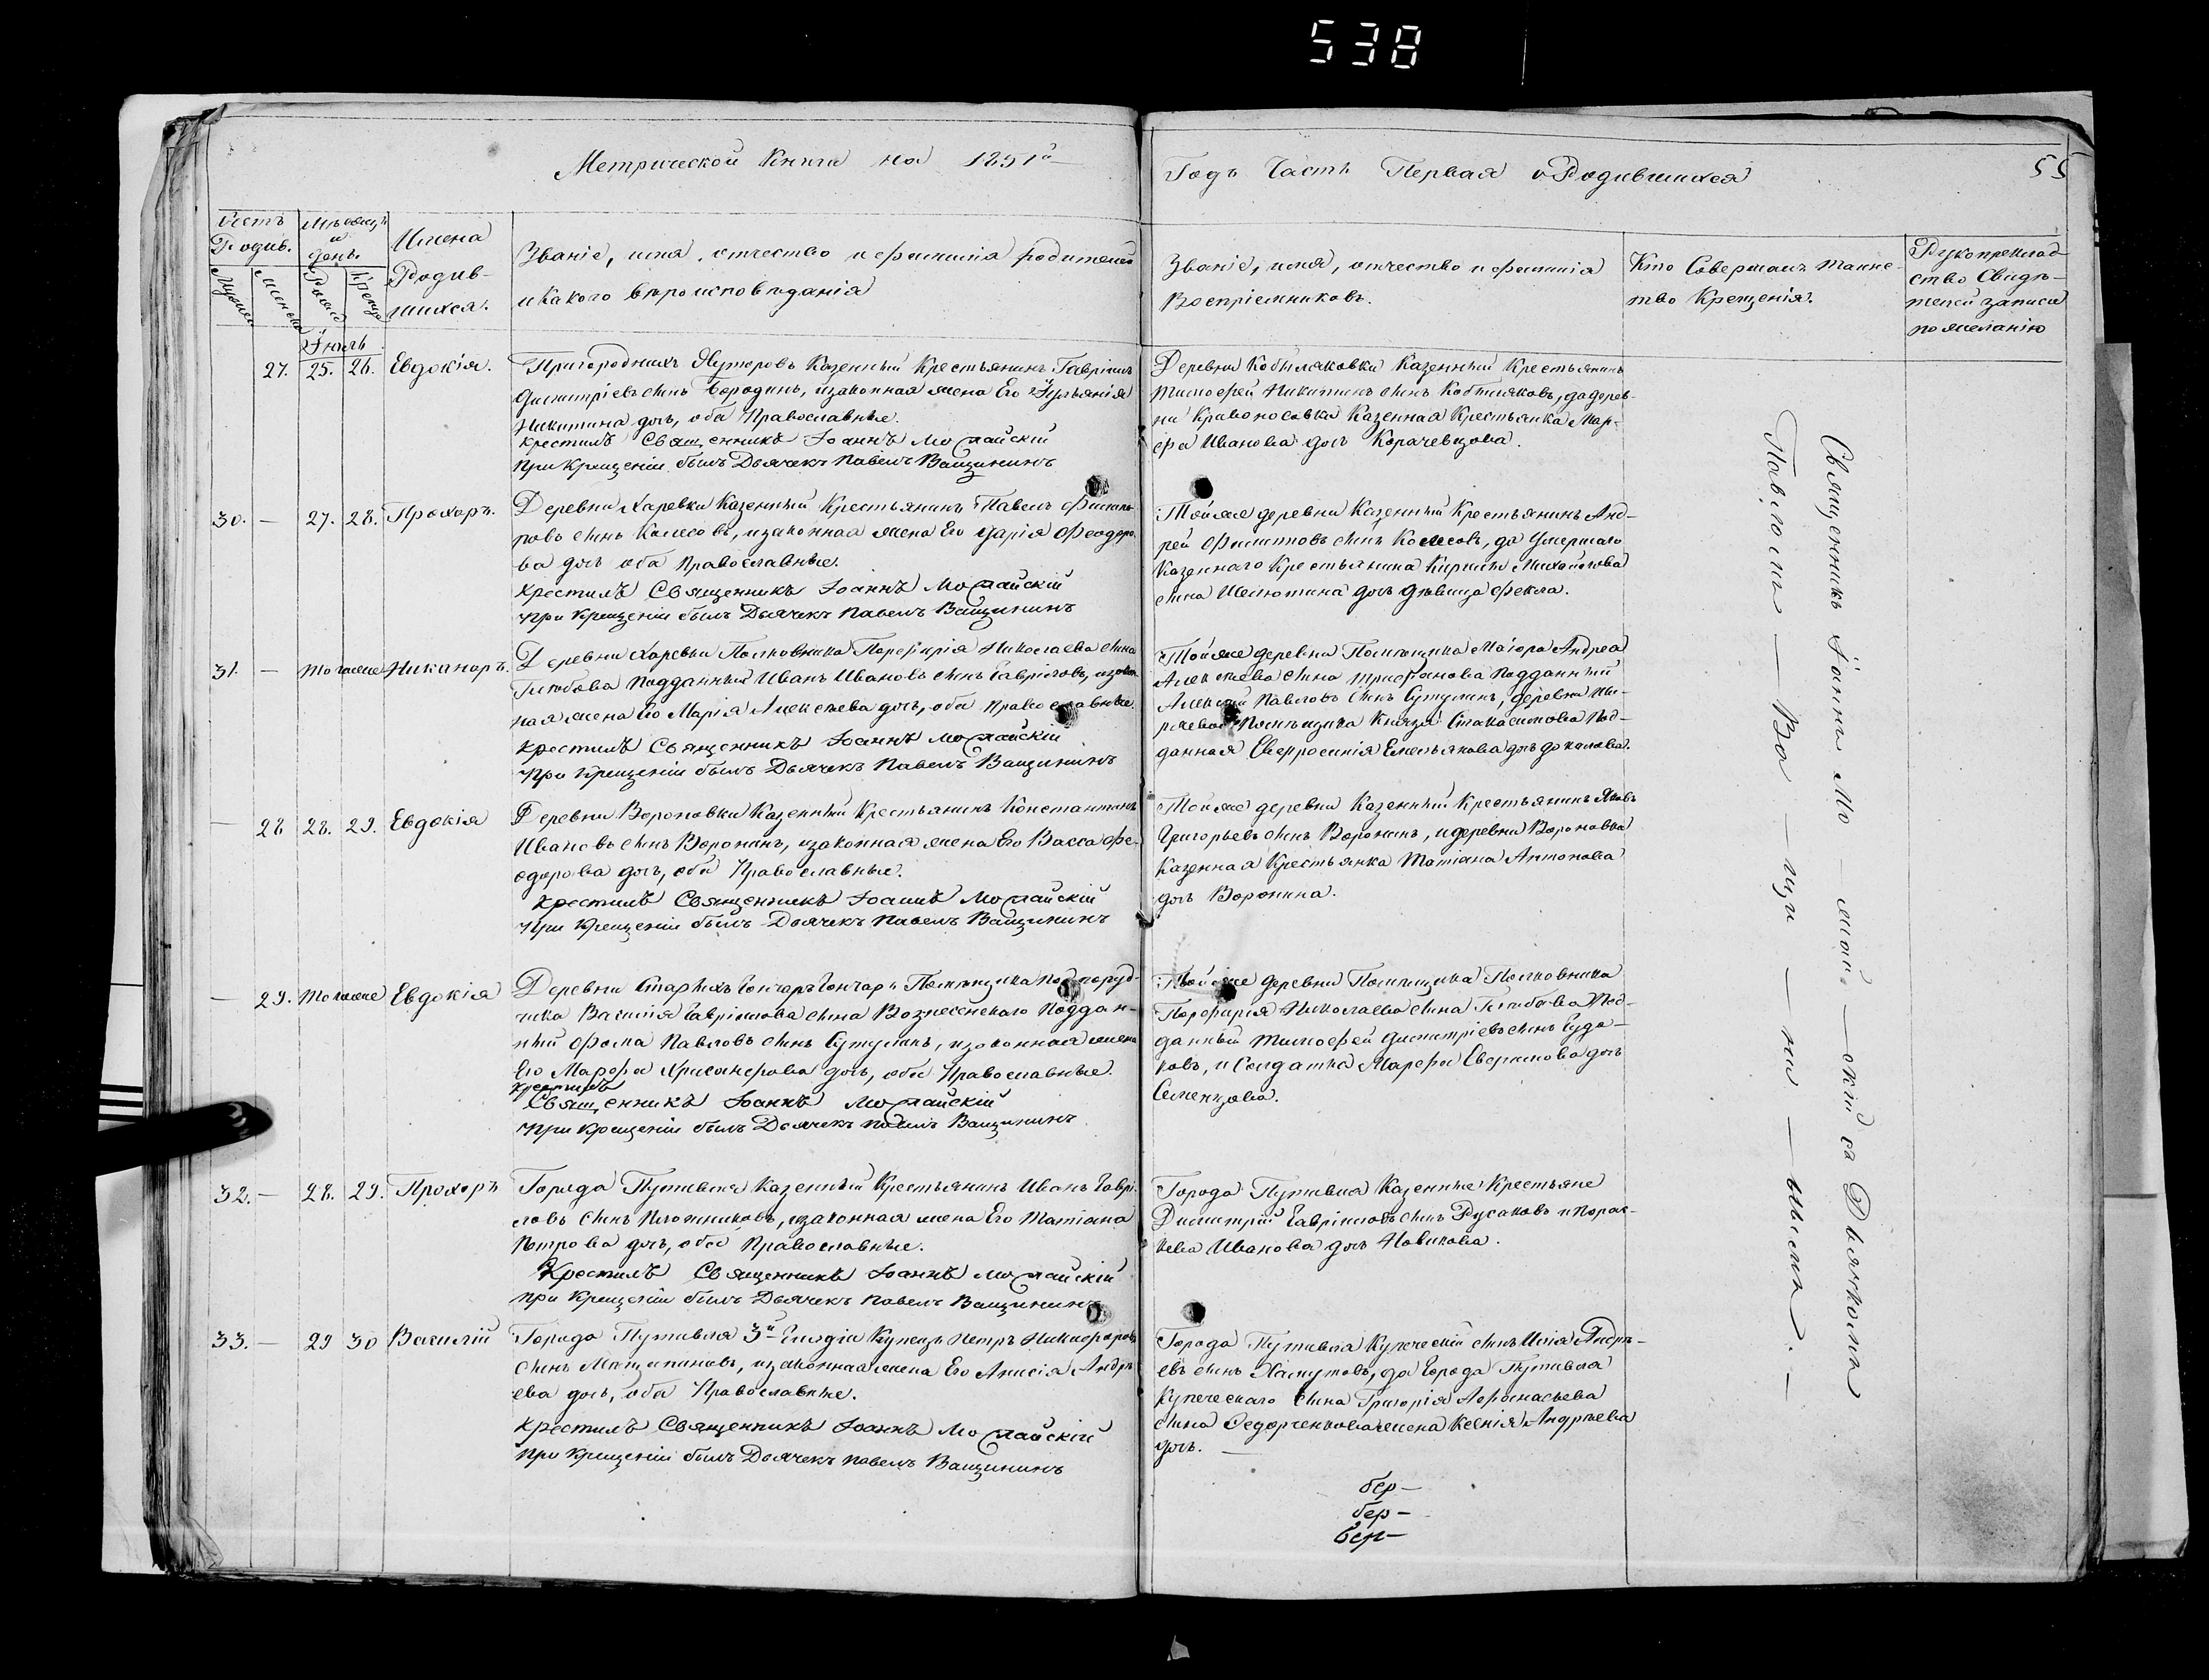 538
Метрической Книги на 1851й
Годъ Часть Первая о Родившихся
55
Счетъ
Родив.
Мужеска
Женска
Мѣсяцъ
и
день.
Рожд
Крещ
Имена
Родив-
шихся.
Званіе, имя, отчество и фамилія родителей
и какого вѣроисповѣданія
Званіе, имя, отчество и фамилія
Воспріемниковъ.
Кто Совершалъ таинс-
тво Крещенія.
Рукоприклад
ство Свидѣ-
телей записи
по желанію
Іюль
27. 25. 26. Евдокія.
Пригородныхъ Хуторовъ Казенный Крестьянинъ Гавріилъ
Димитріевъ сынъ Бородинъ, изаконная жена Его Ульянія
Никитина дочь, оба Православные.
крестилъ Священникъ Іоаннъ Можайскій
при Крещеніи былъ Дьячекъ Павелъ Ващининъ
Деревни Кобыляковки Казенный Крестьянинъ
Тимофей Никитинъ сынъ Кобыляковъ, да дерев-
ни Кравоносовки Казенная Крестьянка Мар-
фа Иванова дочь Корачевцова.
30. — 27. 28. Прохоръ.
Деревни Харевки Казенный Крестьянинъ Павелъ Филип-
повъ сынъ Колесовъ, изаконная жена Его Дарія Феодоро-
ва дочь оба Православные.
крестилъ Священникъ Іоаннъ Можайскій
при Крещеніи былъ Дьячекъ Павелъ Ващининъ
Тойже деревни Казенный Крестьянинъ Анд-
рей Филиповъ сынъ Колесовъ, да Умершаго
Казеннаго Крестьянина Кирилы Михайлова
сына Шелютина дочь дѣвица Фекла.
31. — того же Никаноръ.
Деревни Харевки Полковника Порфирія Николаева сына
Глебова подданный Иванъ Ивановъ сынъ Гавриловъ, изакон-
ная жена Его Марія Алексѣева дочь, оба Православные.
крестилъ Священникъ Іоаннъ Можайскій
при крещеніи былъ Дьячекъ Павелъ Ващининъ
Тойже деревни Помѣщика Маіора Андрея
Алексѣева сына Трифанова подданный
Алексѣй Павловъ сынъ Сутулинъ, деревни
Помѣщика Князя под-
данная Евфросинія Емельянова дочь
— 28 28. 29. Евдокія
Деревни Вороновки Казенный Крестьянинъ Константинъ
Ивановъ сынъ Воронинъ, изаконная жена Его Васса Фе-
одорова дочь, оба Православные.
крестилъ Священникъ Іоаннъ Можайскій
при Крещеніи былъ Дьячекъ Павелъ Ващининъ
Тойже деревни Казенный Крестьянинъ Яковъ
Григорьевъ сынъ Воронинъ, и деревни Вороновки
Казенная Крестьянка Татіана Антонова
дочь Воронина.
— 29. того же Евдокія
Деревни Старыхъ Гончаръ Помѣщика подпоруч-
чика Василія Гавріилова сына Вознесенскаго поддан-
ный Фома Павловъ сынъ Сутулинъ, изаконная жена
Его Марфа Хрисанфова дочь, оба Православные.
крестилъ
Священникъ Іоаннъ Можайскій
при Крещеніи былъ Дьячекъ Павелъ Ващининъ
Тойже деревни Помѣщика Полковника
Порфирія Николаева сына Глебова под-
данный Тимофей Димитріевъ сынъ Гуда-
ковъ, и Солдатка Марфа Ефримова дочь
Семенцова.
32. — 28. 29. Прохоръ
Города Путивля Казенный Крестьянинъ Иванъ Гаврі-
ловъ сынъ Плотниковъ, изаконная жена Его Татіана
Петрова дочь, оба Православные.
Крестилъ Священникъ Іоаннъ Можайскій
при Крещеніи былъ Дьячекъ Павелъ Ващининъ
Города Путивля Казенные Крестьяне
Димитрій Гавріиловъ сынъ Русаковъ и Парас-
кева Иванова дочь Новикова.
33. — 29 30 Василій
Города Путивля 3й Гилдіи Купецъ Петръ Никифоровъ
сынъ Мацыпановъ, изаконная жена Его Анисія Андрѣ
ева дочь, оба Православные.
крестилъ Священникъ Іоаннъ Можайскій
при Крещеніи былъ Дьячекъ Павелъ Ващининъ
Города Путивля Купеческій сынъ Илія Андрѣ-
евъ сынъ Хамутовъ, да Города Путивля
Купеческаго сына Григорія Афонасьева
сына Седорченкова жена Ксенія Андрѣева
дочь.
бер—
бер—
бер—
Священникъ Іоаннъ Мо — жай — скій съ Дьячкомъ
Павломъ — Ва — щи — ни — нымъ. —